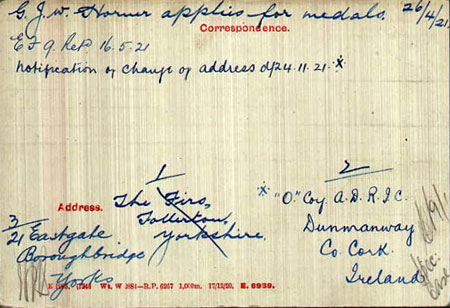 G. J. W. Horner applies for medals. 26/4/21.
Correspondence.
E F 9. Retd 16.5.21
Notification of change of address d/24.11.21. x
1
2
Address.
The Firs,
Tollerton,
Yorkshire.
x "O" Coy A.D.R.I.C.
Dunmanway
Co. Cork.
Ireland
3
21 Eastgate
Boroughbridge
Yorks
Wt. W 2881—R.P. 6267 1,000m. 17/12/20. E. 6939.